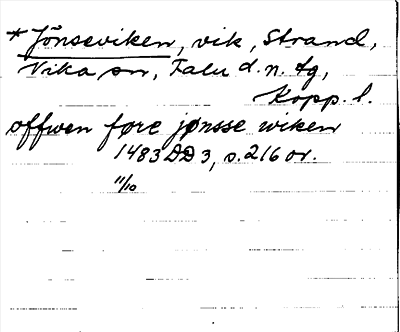 *Jönseviken, vik, Strand,
Vika sn, Falu d. n. tg,
Kopp. l.
offwen føre jønsse wiken
1483 DD 3, s. 216 or.
11/10